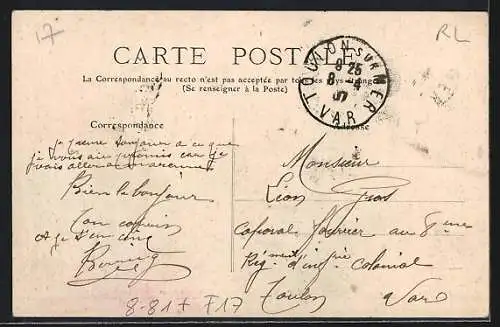 17
RL
CARTE POSTALE
La Correspondance au recto n'est pas acceptée par tous les pays étrangers
(Se renseigner à la Poste)
TOULON-SUR-MER
8-25
8-4
07
VAR
Correspondance
Adresse
je pense toujours à ce que
je vous ai promis car je
vais aller
Bien le bonjour
Ton copain
Monsieur
Léon Gros
Caporal fourrier au 8ème
Rég ment d'inf rie Colonial
Toulon Var
8-81+ F17